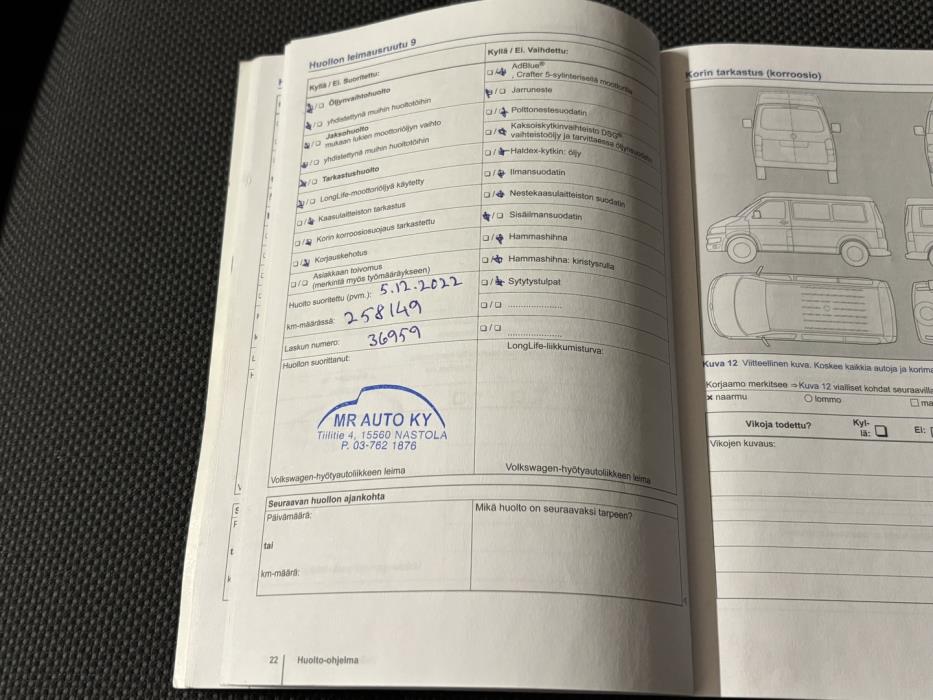 Huollon leimausruutu 9
Kyllä / Ei. Suoritettu:
Öljynvaihtohuolto
yhdistettynä muihin huoltotöihin
Jaksohuolto
mukaan lukien moottoriöljyn vaihto
yhdistettynä muihin huoltotöihin
Tarkastushuolto
LongLife-moottoriöljyä käytetty
Kaasulaitteiston tarkastus
Korin korroosiosuojaus tarkastettu
Korjauskehotus
Asiakkaan toivomus
(merkintä myös työmääräykseen)
Huolto suoritettu (pvm.): 5.12.2022
km-määrässä: 258149
Laskun numero: 36959
Huollon suorittanut:
MR AUTO KY
Tiilitie 4, 15560 NASTOLA
P. 03-762 1876
Volkswagen-hyötyautoliikkeen leima
Kyllä / Ei. Vaihdettu:
AdBlue®
, Crafter 5-sylinterisellä moottorilla
Jarruneste
Polttonestesuodatin
Kaksoiskytkinvaihteisto DSG®
vaihteistoöljy ja tarvittaessa öljynsuodatin
Haldex-kytkin: öljy
Ilmansuodatin
Nestekaasulaitteiston suodatin
Sisäilmansuodatin
Hammashihna
Hammashihna: kiristysrulla
Sytytystulpat
LongLife-liikkumisturva:
Volkswagen-hyötyautoliikkeen leima
Seuraavan huollon ajankohta
Päivämäärä:
tai
km-määrä:
Mikä huolto on seuraavaksi tarpeen?
22 Huolto-ohjelma
Korin tarkastus (korroosio)
Kuva 12 Viitteellinen kuva. Koskee kaikkia autoja ja
Korjaamo merkitsee ⇒ Kuva 12 vialliset kohdat
× naarmu ○ lommo □ ma
Vikoja todettu? Kyl-
lä: □ Ei:
Vikojen kuvaus: